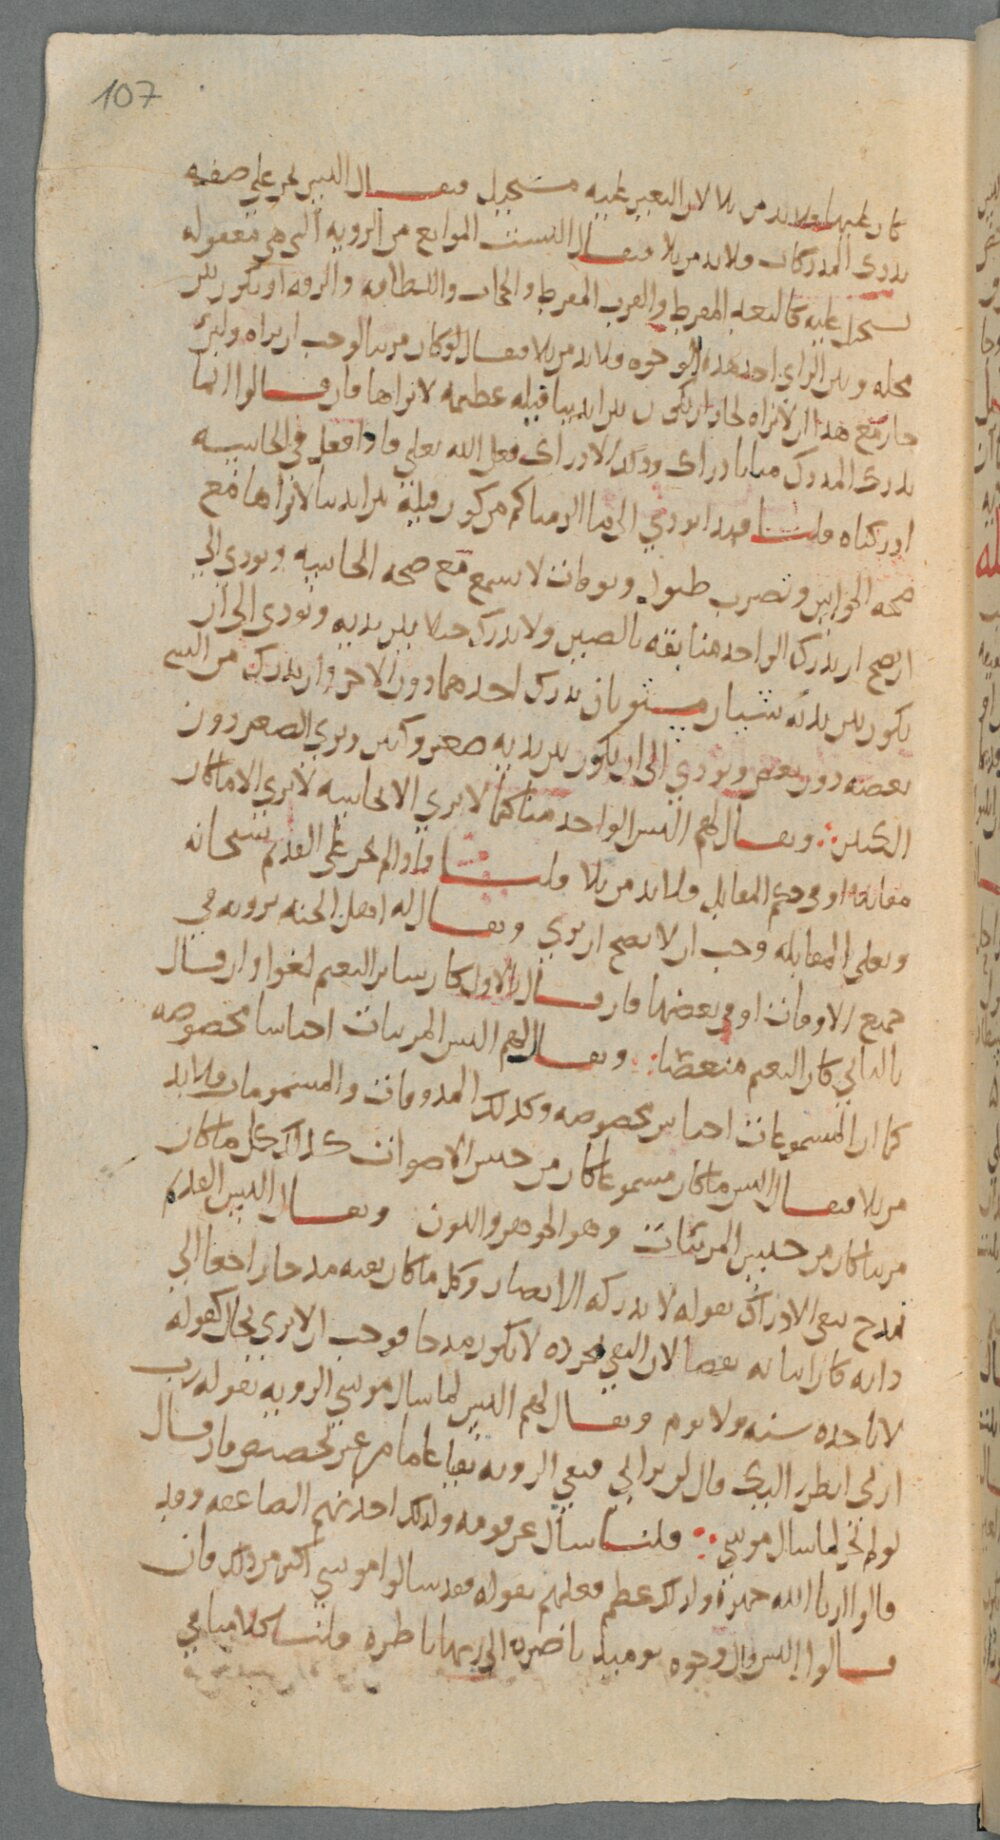 107
كان عليها ولابد من بلا لان التغيير عليه مستحيل ويقال اليس نحن على صفة
ندرك المدركات ولابد من بلا ويقال اليست الموانع من الروية التي هي معقوله
تستحيل عليه كالبعد المفرط والقرب المفرط والحجاب واللطافه والرقه او يكون بين
محله وبين الراي احد هذه الوجوه ولابد من بلا ويقال لو كان مرييا لوجب ان نراه ولين
جاز مع هذا ان لا نراه لجاز ان يكون بين ايدينا فيله عظيمه لا نراها فان قالوا انما
ندرك المدرك منا بادراك وذلك الادراك فعل الله تعالى فاذا فعل في الحاسه
ادركناه قلنا فهذا يودي الى ما الزمناكم من كون فيلة بين ايدينا لا نراها مع
صحه الحواس وتضرب طبول وبوقات لا نسمع مع صحه الحاسيه ويودي الى
ان يصح ان يدرك الواحد منا بقه بالصين ولا يدرك جبلا بين يديه ويودي الى ان
يكون بين يديه شيان مستويان يدرك احدهما دون الاخر وان يدرك من الشي
بعضه دون بعض ويودي الى ان يكون بين يديه صغير وكبير ويرى الصغير دون
الكبير ويقال لهم اليس الواحد منا كما لا يرى الا بحاسيه لا يرى الا ما كان
مقابله او في حكم المقابل ولابد من بلا قلنا فاذا لم يجز على القديم سبحانه
وتعالى المقابله وجب ان لا يصح ان يرى ويقال له اهل الجنه يرونه في
جميع الاوقات او في بعضها فان قال بالاول كان ساير النعيم لغوا وان قال
بالثاني كان النعيم منغصا ويقال لهم اليس المرييات اجناسا مخصوصه
كما ان المسموعات اجناس مخصوصه وكذلك المذوقات والمشمومات ولابد
من بلا ويقال اليس ما كان مسموعا كان من جنس الاصوات كذلك كل ما كان
مرييا كان من جنس المرئيات وهو الجوهر واللون ويقال اليس القديم
تمدح بنفي الادراك بقوله لا تدركه الابصار وكل ما كان نفيه مدحا راجعا الى
ذاته كان اثباته نقصا لان النفي بمجرده لا يكون مدحا فوجب ان لا يرى بحال كقوله
لا تاخذه سنه ولا نوم ويقال لهم اليس لما سال موسى الرويه بقوله رب
ارني انظر اليك قال لن تراني فنفى الرويه نفيا عاما من غير تخصيص فان قال
لو لم تجز لما سال موسى قلنا سال عن قومه ولذلك اخذتهم الصاعقه وقد
قالوا ارنا الله جهرة ولذلك عظم فعلهم بقوله فقد سالوا موسى اكبر من ذلك فان
قالوا اليس قال وجوه يوميذ ناضره الى ربها ناظره قلنا كلامنا في